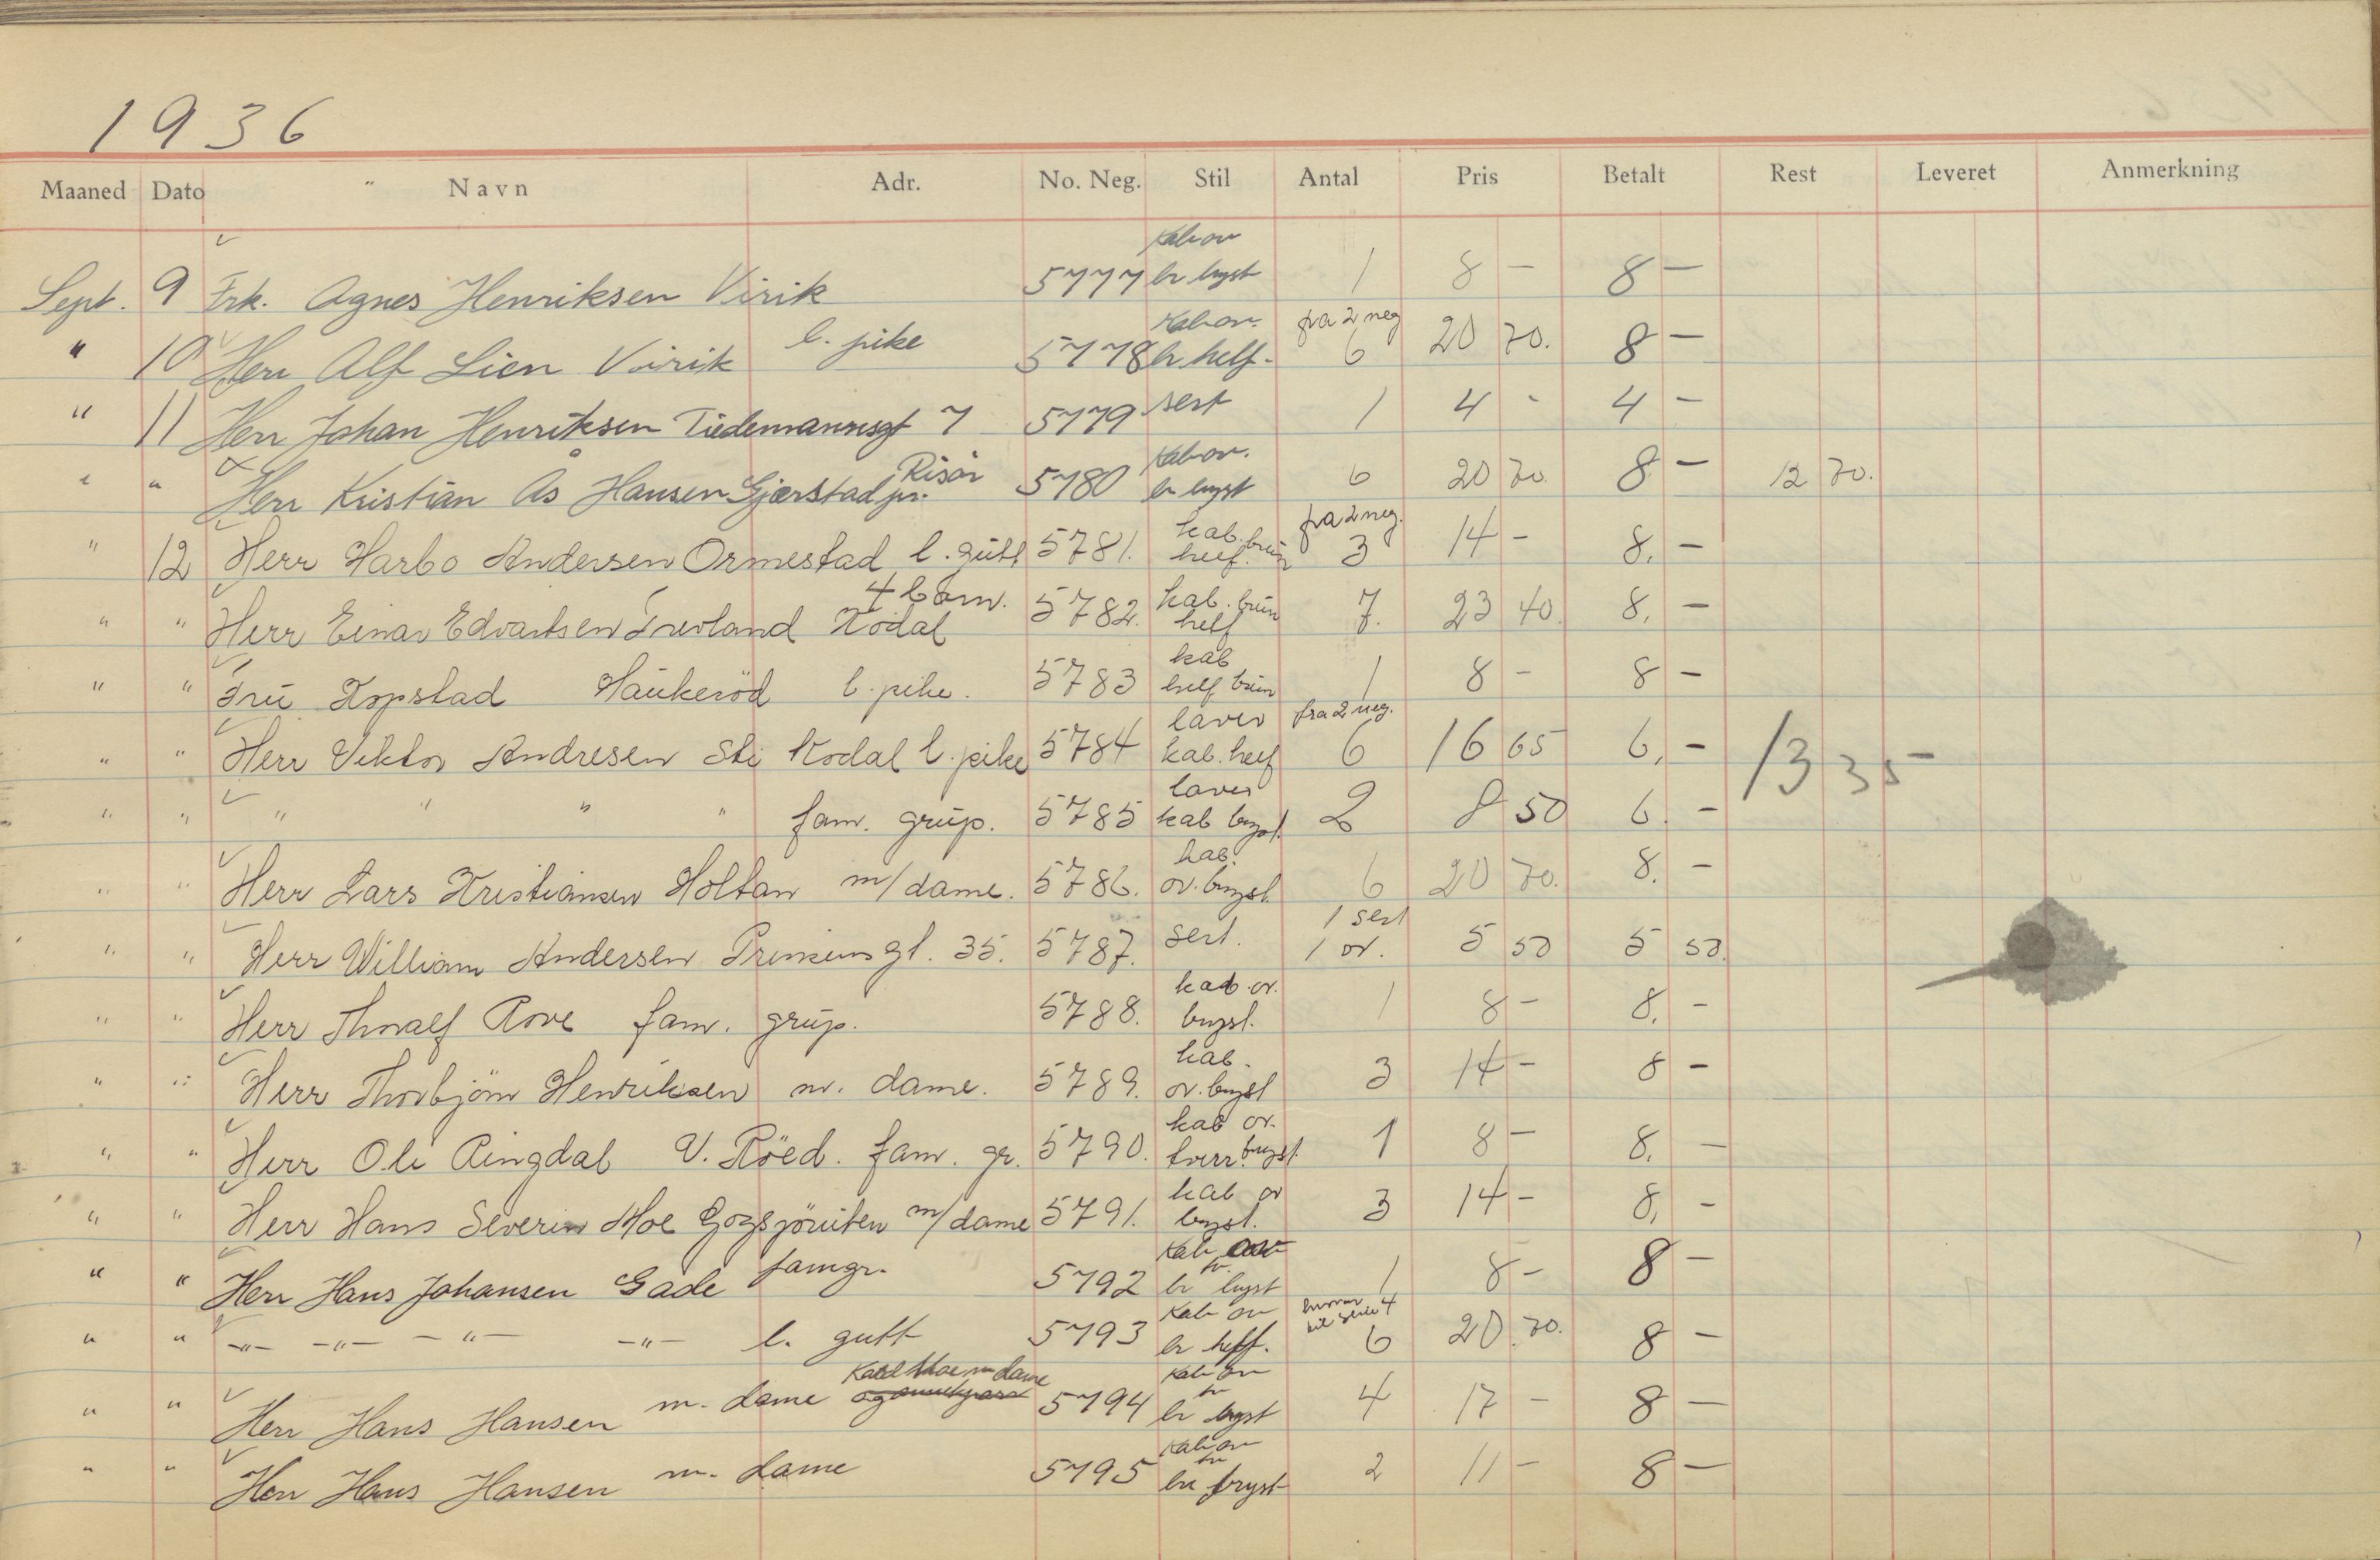 1936
Maaned Dato Navn Adr. No. Neg. Stil Antal Pris Betalt Rest Leveret Anmerkning
Kab ov
Sept. 9 Frk. Agnes Henriksen Virik 5777 br bryst 1 8 - 8 -
Kab ov. fra 2 neg
" 10 Herr Alf Lien Virik l. pike 5778 br. helf. 6 20 70. 8 -
" 11 Herr Johan Henriksen Tiedemannsgt 7 5779 sert 1 4 - 4 -
Risör Kab ov.
" " Herr Kristian Ås Hansen Gjerstad pr. 5780 br bryst 6 20 70. 8 - 12 70.
kab. brün fra 2 neg.
" 12 Herr Harbo Andersen Ormestad l. gütt 5781. helf. 3 14 - 8. -
4 barn. kab. brün
" " Herr Einar Edvartsen Kodal 5782. helf 7. 23 40. 8, -
kab
" " Frü Kopstad Haükeröd l. pike. 5783 helf brün 1 8 - 8 -
laver fra 2 neg.
" " Herr Viktor Andresen Sti Kodal l. pike 5784 kab. helf 6 16 65 6, - 13 35
laver
" " " " " " fam. grüp. 5785 kab bryst. 2 8 50 6. -
kab.
" " Herr Lars Kristiansen Holtan m/dame. 5786. ov. bryst. 6 20 70. 8. -
1 sert
" " Herr William Andersen Prinsensgt. 35. 5787. sert. 1 ov. 5 50 5 50.
kab ov.
" " Herr Thoralf Rove fam. grüp. 5788. bryst. 1 8 - 8, -
kab.
" " Herr Thorbjörn Henriksen m. dame. 5789. ov. bryst 3 14 - 8 -
kab ov.
" " Herr Ole Ringdal V. Röed. fam. gr. 5790. tverr. bryst. 1 8 - 8. -
kab ov
" " Herr Hans Severin Moe m/dame 5791. bryst. 3 14 - 8, -
Kab
tv.
" " Herr Hans Johansen Gade famgr. 5792 br bryst 1 8 - 8 -
Kab ov serie 4
" " -"- -"- -"- -"- l. gutt 5793 br helf. 6 20. 70. 8 -
Moe m dame Kab ov
tv
" " Herr Hans Hansen m. dame 5794 br bryst 4 17 - 8 -
Kab ov
tv
" " Herr Hans Hansen m. dame 5795 br bryst 2 11 - 8 -